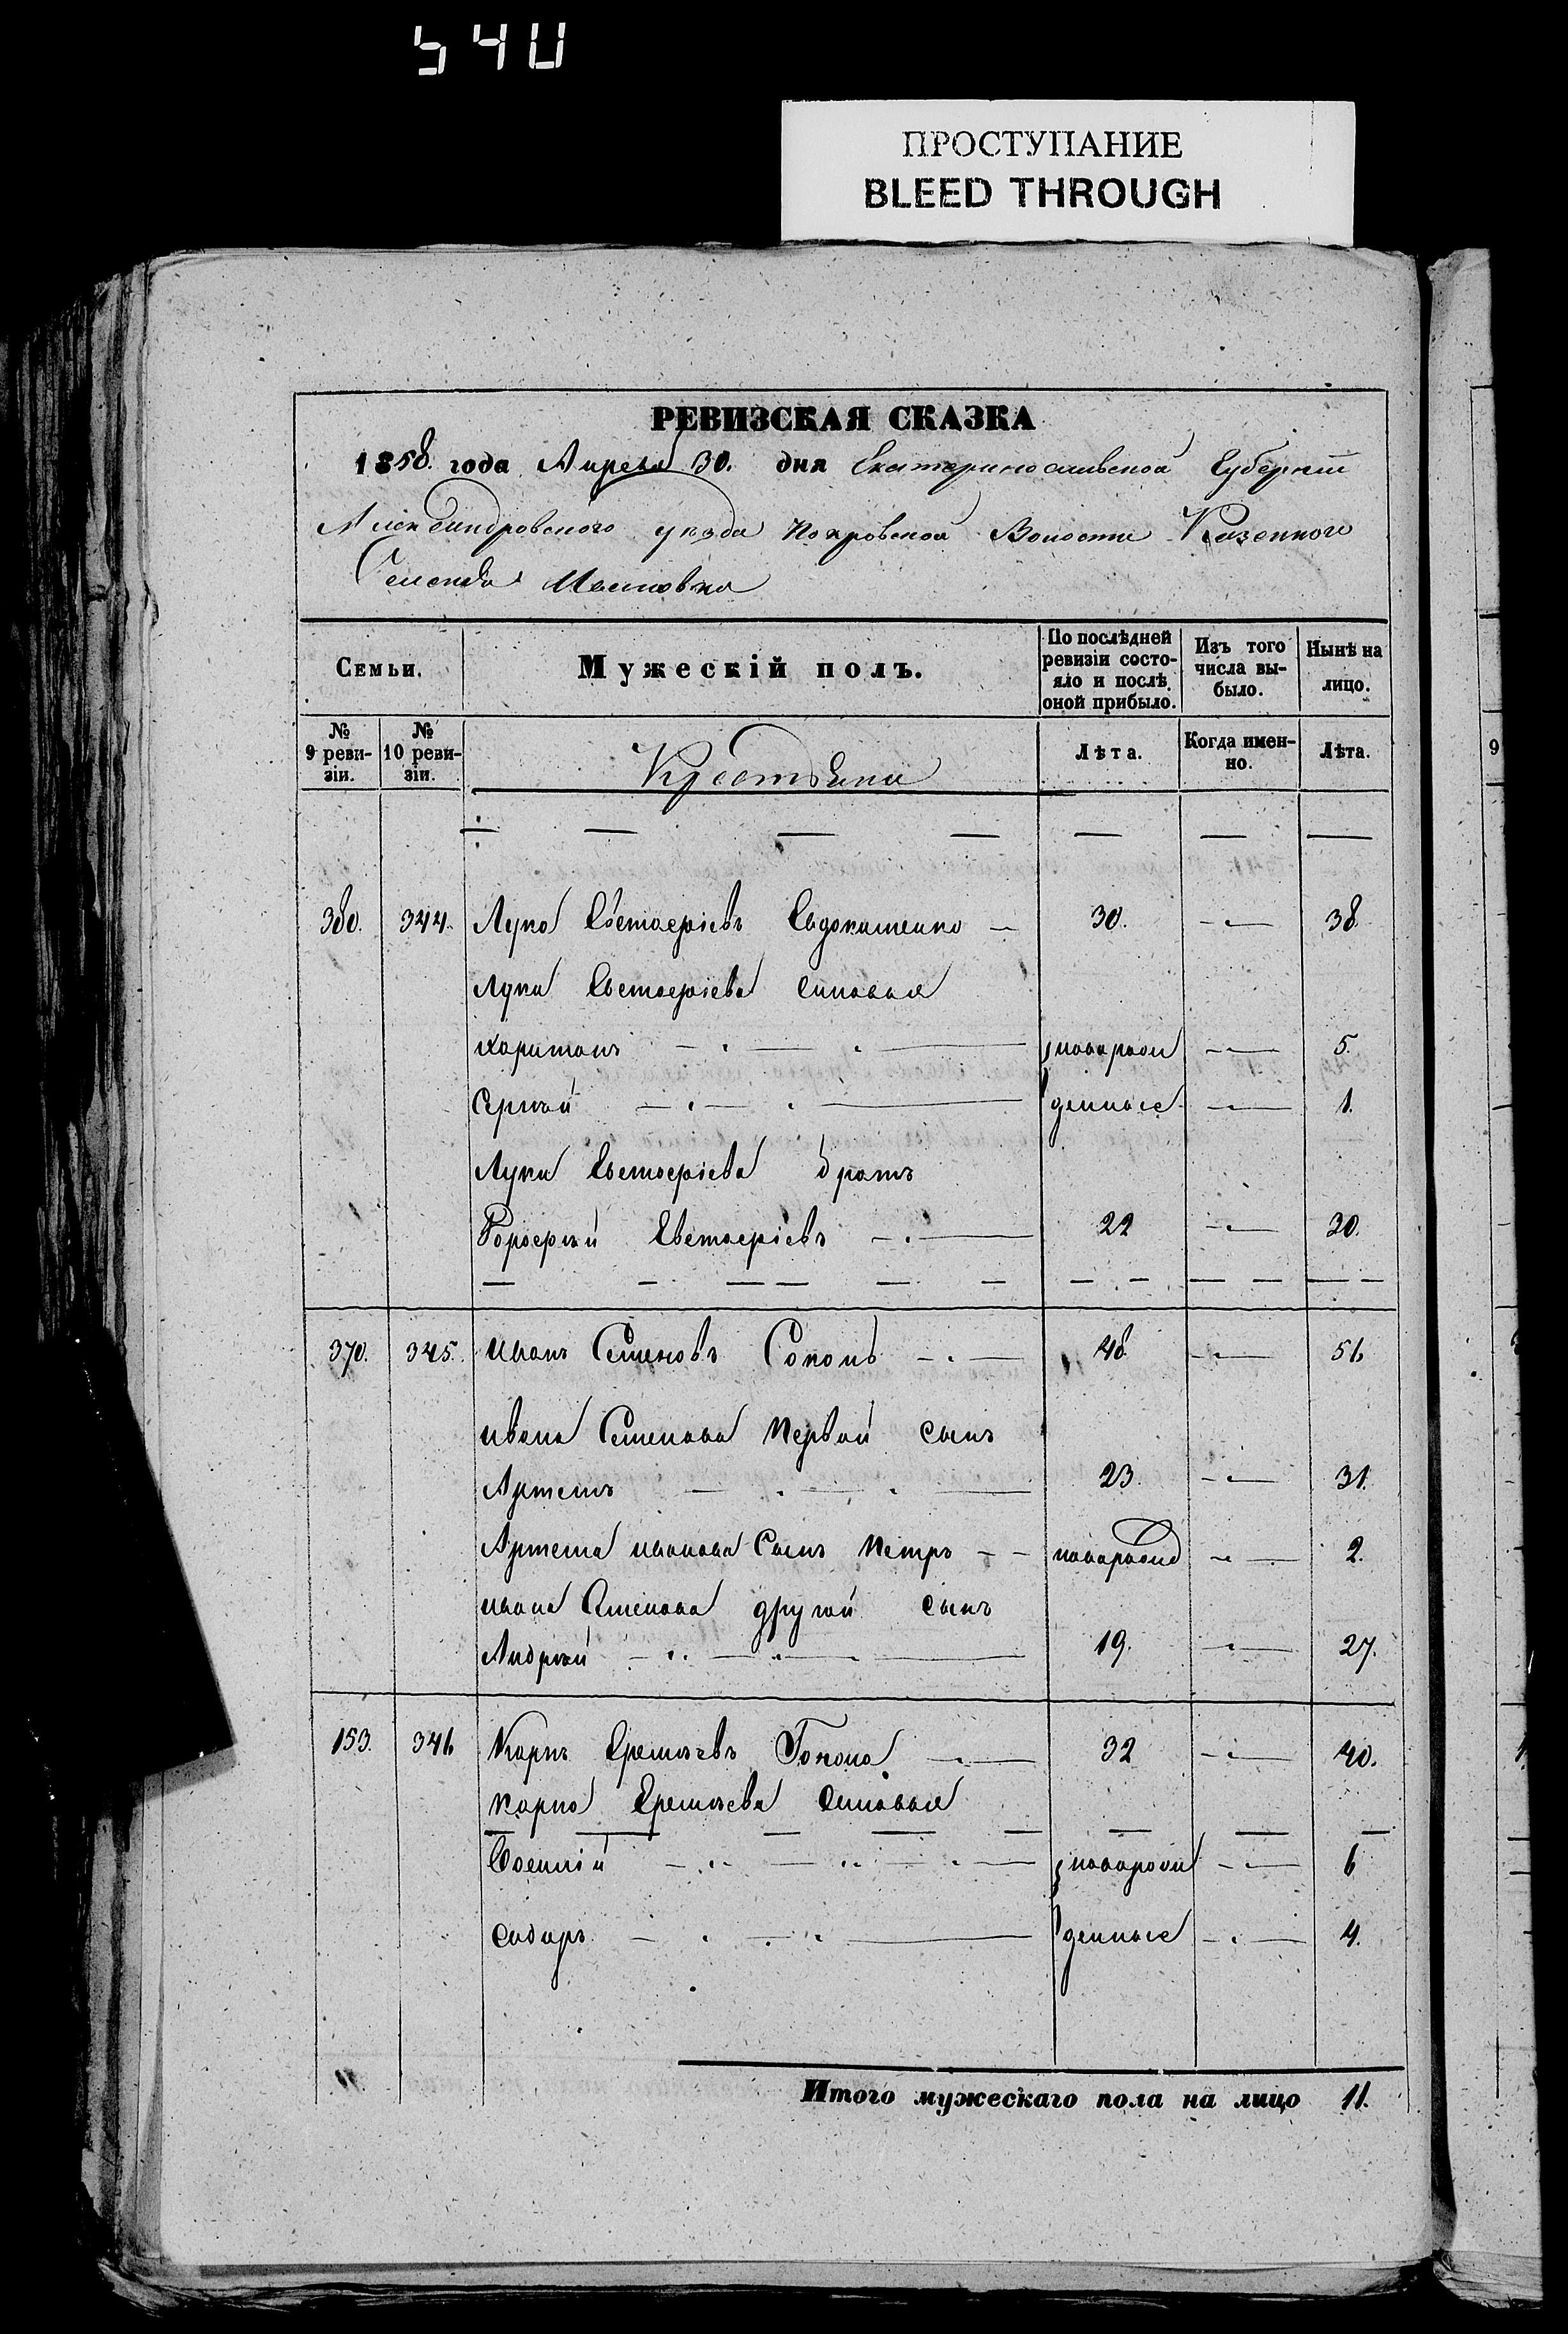 540
ПРОСТУПАНИЕ
BLEED THROUGH
РЕВИЗСКАЯ СКАЗКА
1858. года Апреля 30. дня Екатеринославской Губерніи
Александровского уезда Покровской Волости Казенного
Селенія
Семьи. Мужескій полъ. По послѣдней ревизіи состояло и послѣ оной прибыло. Изъ того числа выбыло. Нынѣ на лицо.
№ 9 ревизіи. № 10 ревизіи. Крестьяне Лѣта. Когда именно. Лѣта.
380. 344. Лука Евтосеріевъ Евдокименко 30. 38.
Луки Евтосеріева синовья
Харитонъ новорож 5.
Сергѣй денные 1.
Луки Евтосеріева братъ
Евтосеріевъ 22 30.
370. 345. Иванъ Семеновъ Соколъ 48 56
Ивана Семенова Первой сынъ
Артемъ 23. 31.
Артема Иванова Сынъ Петръ новорожд 2.
Ивана Семенова другой сынъ
Андрей 19. 27.
153. 346 Карпъ Еремѣевъ 32 40.
Карпа Еремѣева синовья
новорож 6
Сидоръ денные 4.
Итого мужескаго пола на лицо 11.
9